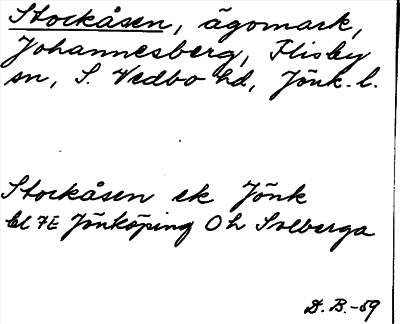 Stockåsen, ägomark,
Johannesberg, Flisby
sn, S. Vedbo hd, Jönk. l.
Stockåsen ek Jönk
bl 7E Jönköping Oh Solberga
D. B. -59